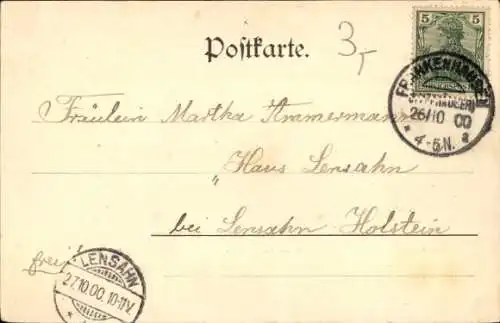 5 5
Postkarte.
3,-
FRANKENHAUSEN
(KYFFHÄUSER)
26/10 00
* 4-5N. a
Fräulein Martha Ammermann
"Haus Lensahn
bei Lensahn Holstein
frei!
LENSAHN
27.10.00.10-11V.